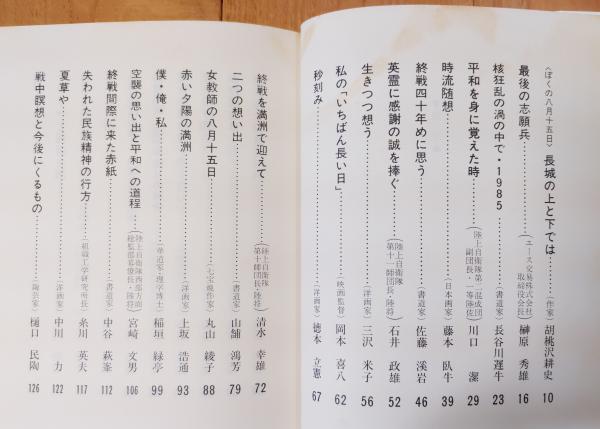 〈ぼくの八月十五日〉長城の上と下では……(作家) 胡桃沢耕史 10
最後の志願兵……(エース交易株式会社取締役会長) 榊原 秀雄 16
核狂乱の渦の中で・1985……(書道家) 長谷川遅牛 23
平和を身に覚えた時……(陸上自衛隊第一混成団副団長・一等陸佐) 川口 潔 29
時流随想……(日本画家) 藤本 臥牛 39
終戦四十年めに思う……(書道家) 佐藤 溪岩 46
英霊に感謝の誠を捧ぐ……(陸上自衛隊第十一師団長・陸将) 石井 政雄 52
生きつつ想う……(洋画家) 三沢 米子 56
私の「いちばん長い日」……(映画監督) 岡本 喜八 62
秒刻み……(洋画家) 徳本 立憲 67
終戦を満洲で迎えて……(陸上自衛隊第十師団長・陸将) 清水 幸雄 72
二つの想い出……(書道家) 山舗 鴻芳 79
女教師の八月十五日……(七宝焼作家) 丸山 綾子 88
赤い夕陽の満洲……(洋画家) 上坂 浩通 93
僕・俺・私……(華道家・理学博士) 稲垣 緑亭 99
空襲の思い出と平和への道程……(陸上自衛隊西部方面総監部幕僚長・陸将) 宮崎 文男 106
終戦間際に来た赤紙……(書道家) 中谷 萩峯 112
失われた民族精神の行方……(組織工学研究所長) 糸川 英夫 117
夏草や……(洋画家) 中川 力 122
戦中瞑想と今後にくるもの……(陶芸家) 樋口 民陶 126